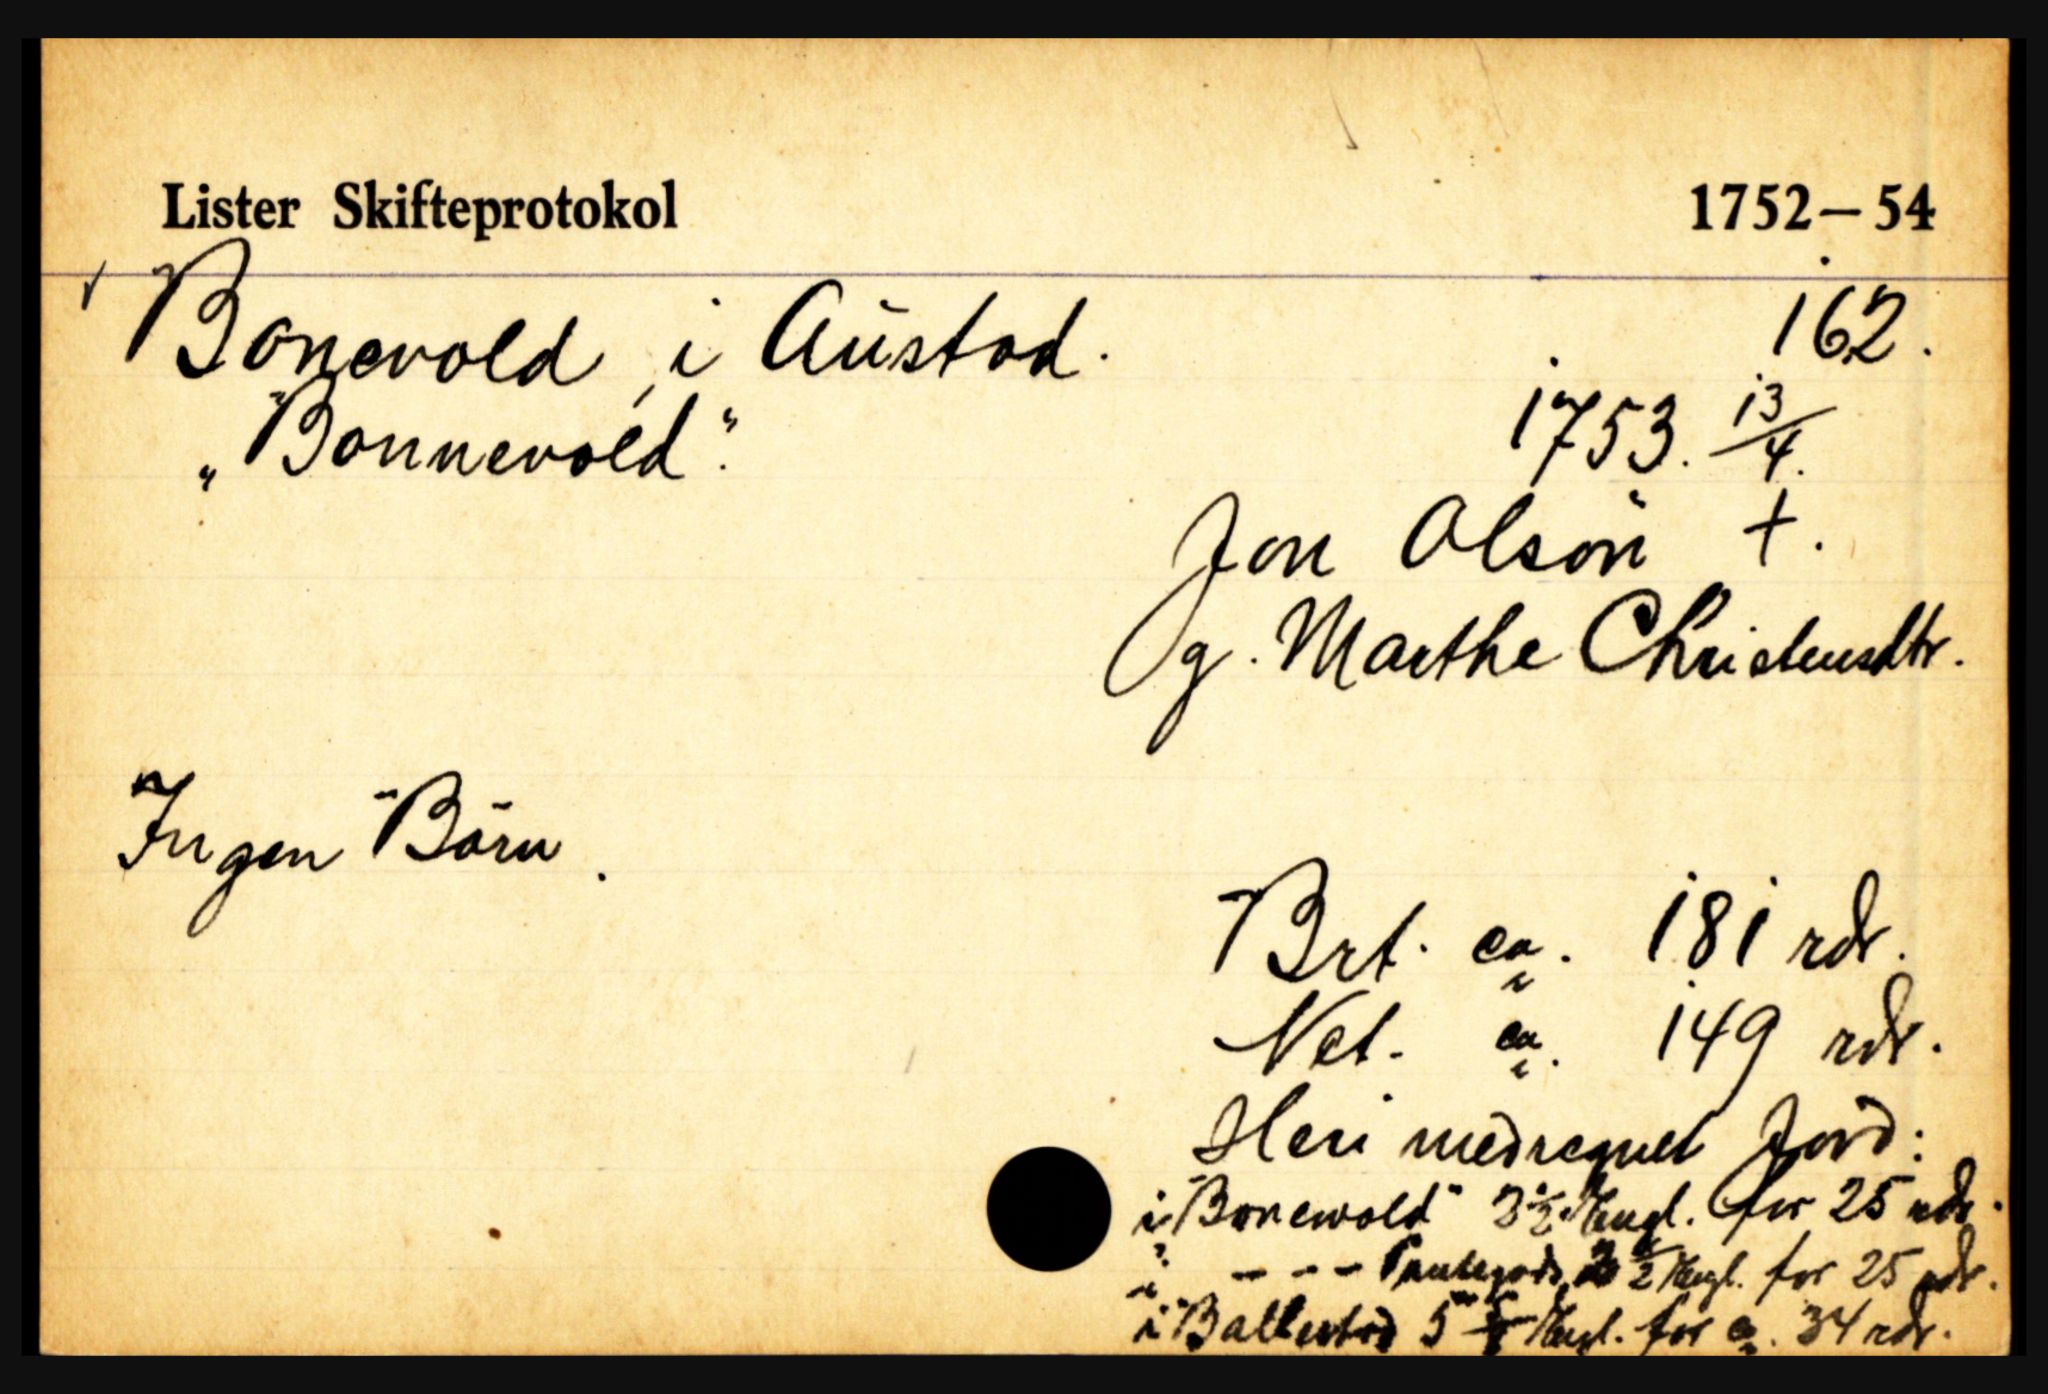 Lister Skifteprotokol 1752–54
Bonevold, i Austad. 162.
„Bonnevold". 1753. 13/4.
Jon Olson †.
g. Marthe Christensdtr.
Ingen Börn.
Brt. ca. 181 rdr.
Net. ca. 149 rdr.
Heri medregnet Jord:
i "Bonewold" 3 1/2 Hugl. for 25 rdr.
i - - - Pantegods 2 1/2 Hugl. for 25 rdr.
i "Ballestad 5 Hugl. for ca. 34 rdr.